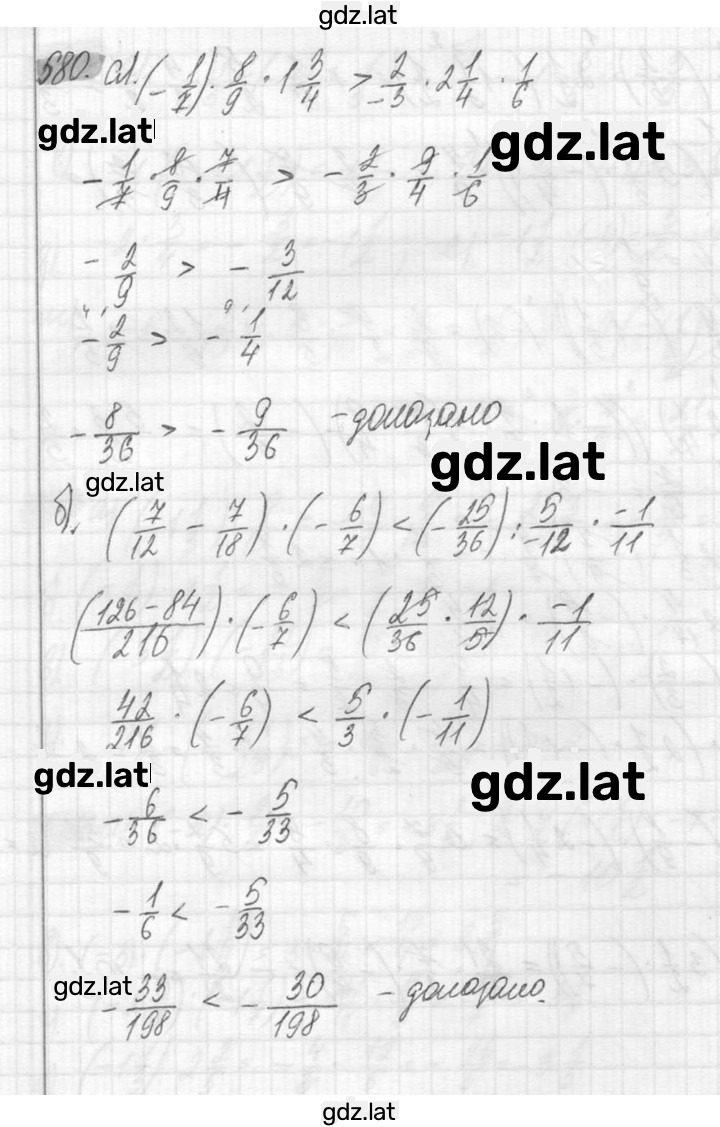 gdz.lat
680. а). (-1/7) · 8/9 · 1 3/4 > 2/-3 · 2 1/4 · 1/6
gdz.lat
gdz.lat
-1/7 · 8/9 · 7/4 > -2/3 · 9/4 · 1/6
-2/9 > -3/12
4 9
-2/9 > -1/4
-8/36 > -9/36 - доказано
gdz.lat
gdz.lat
б). (7/12 - 7/18) · (-6/7) < (-25/36) : 5/-12 · -1/11
((126-84)/216) · (-6/7) < (25/36 · 12/5) · -1/11
42/216 · (-6/7) < 5/3 · (-1/11)
gdz.lat
gdz.lat
-6/36 < -5/33
-1/6 < -5/33
gdz.lat
-33/198 < -30/198 - доказано.
gdz.lat